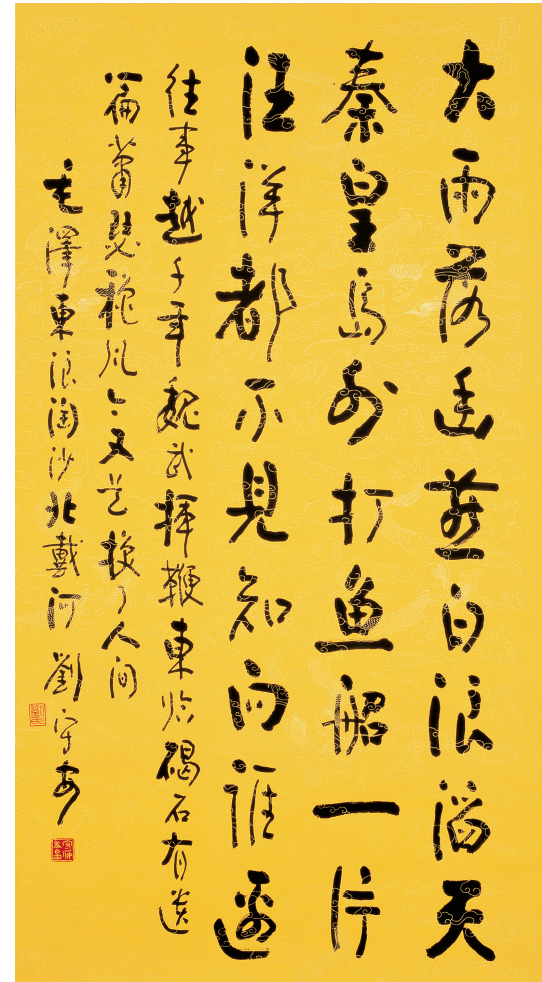 大雨落幽燕白浪滔天
秦皇島外打魚船一片
汪洋都不見知向誰邊
往事越千年魏武揮鞭東臨碣石有遺
篇蕭瑟穐風今又是換了人間
毛澤東浪淘沙北戴河 劉守安